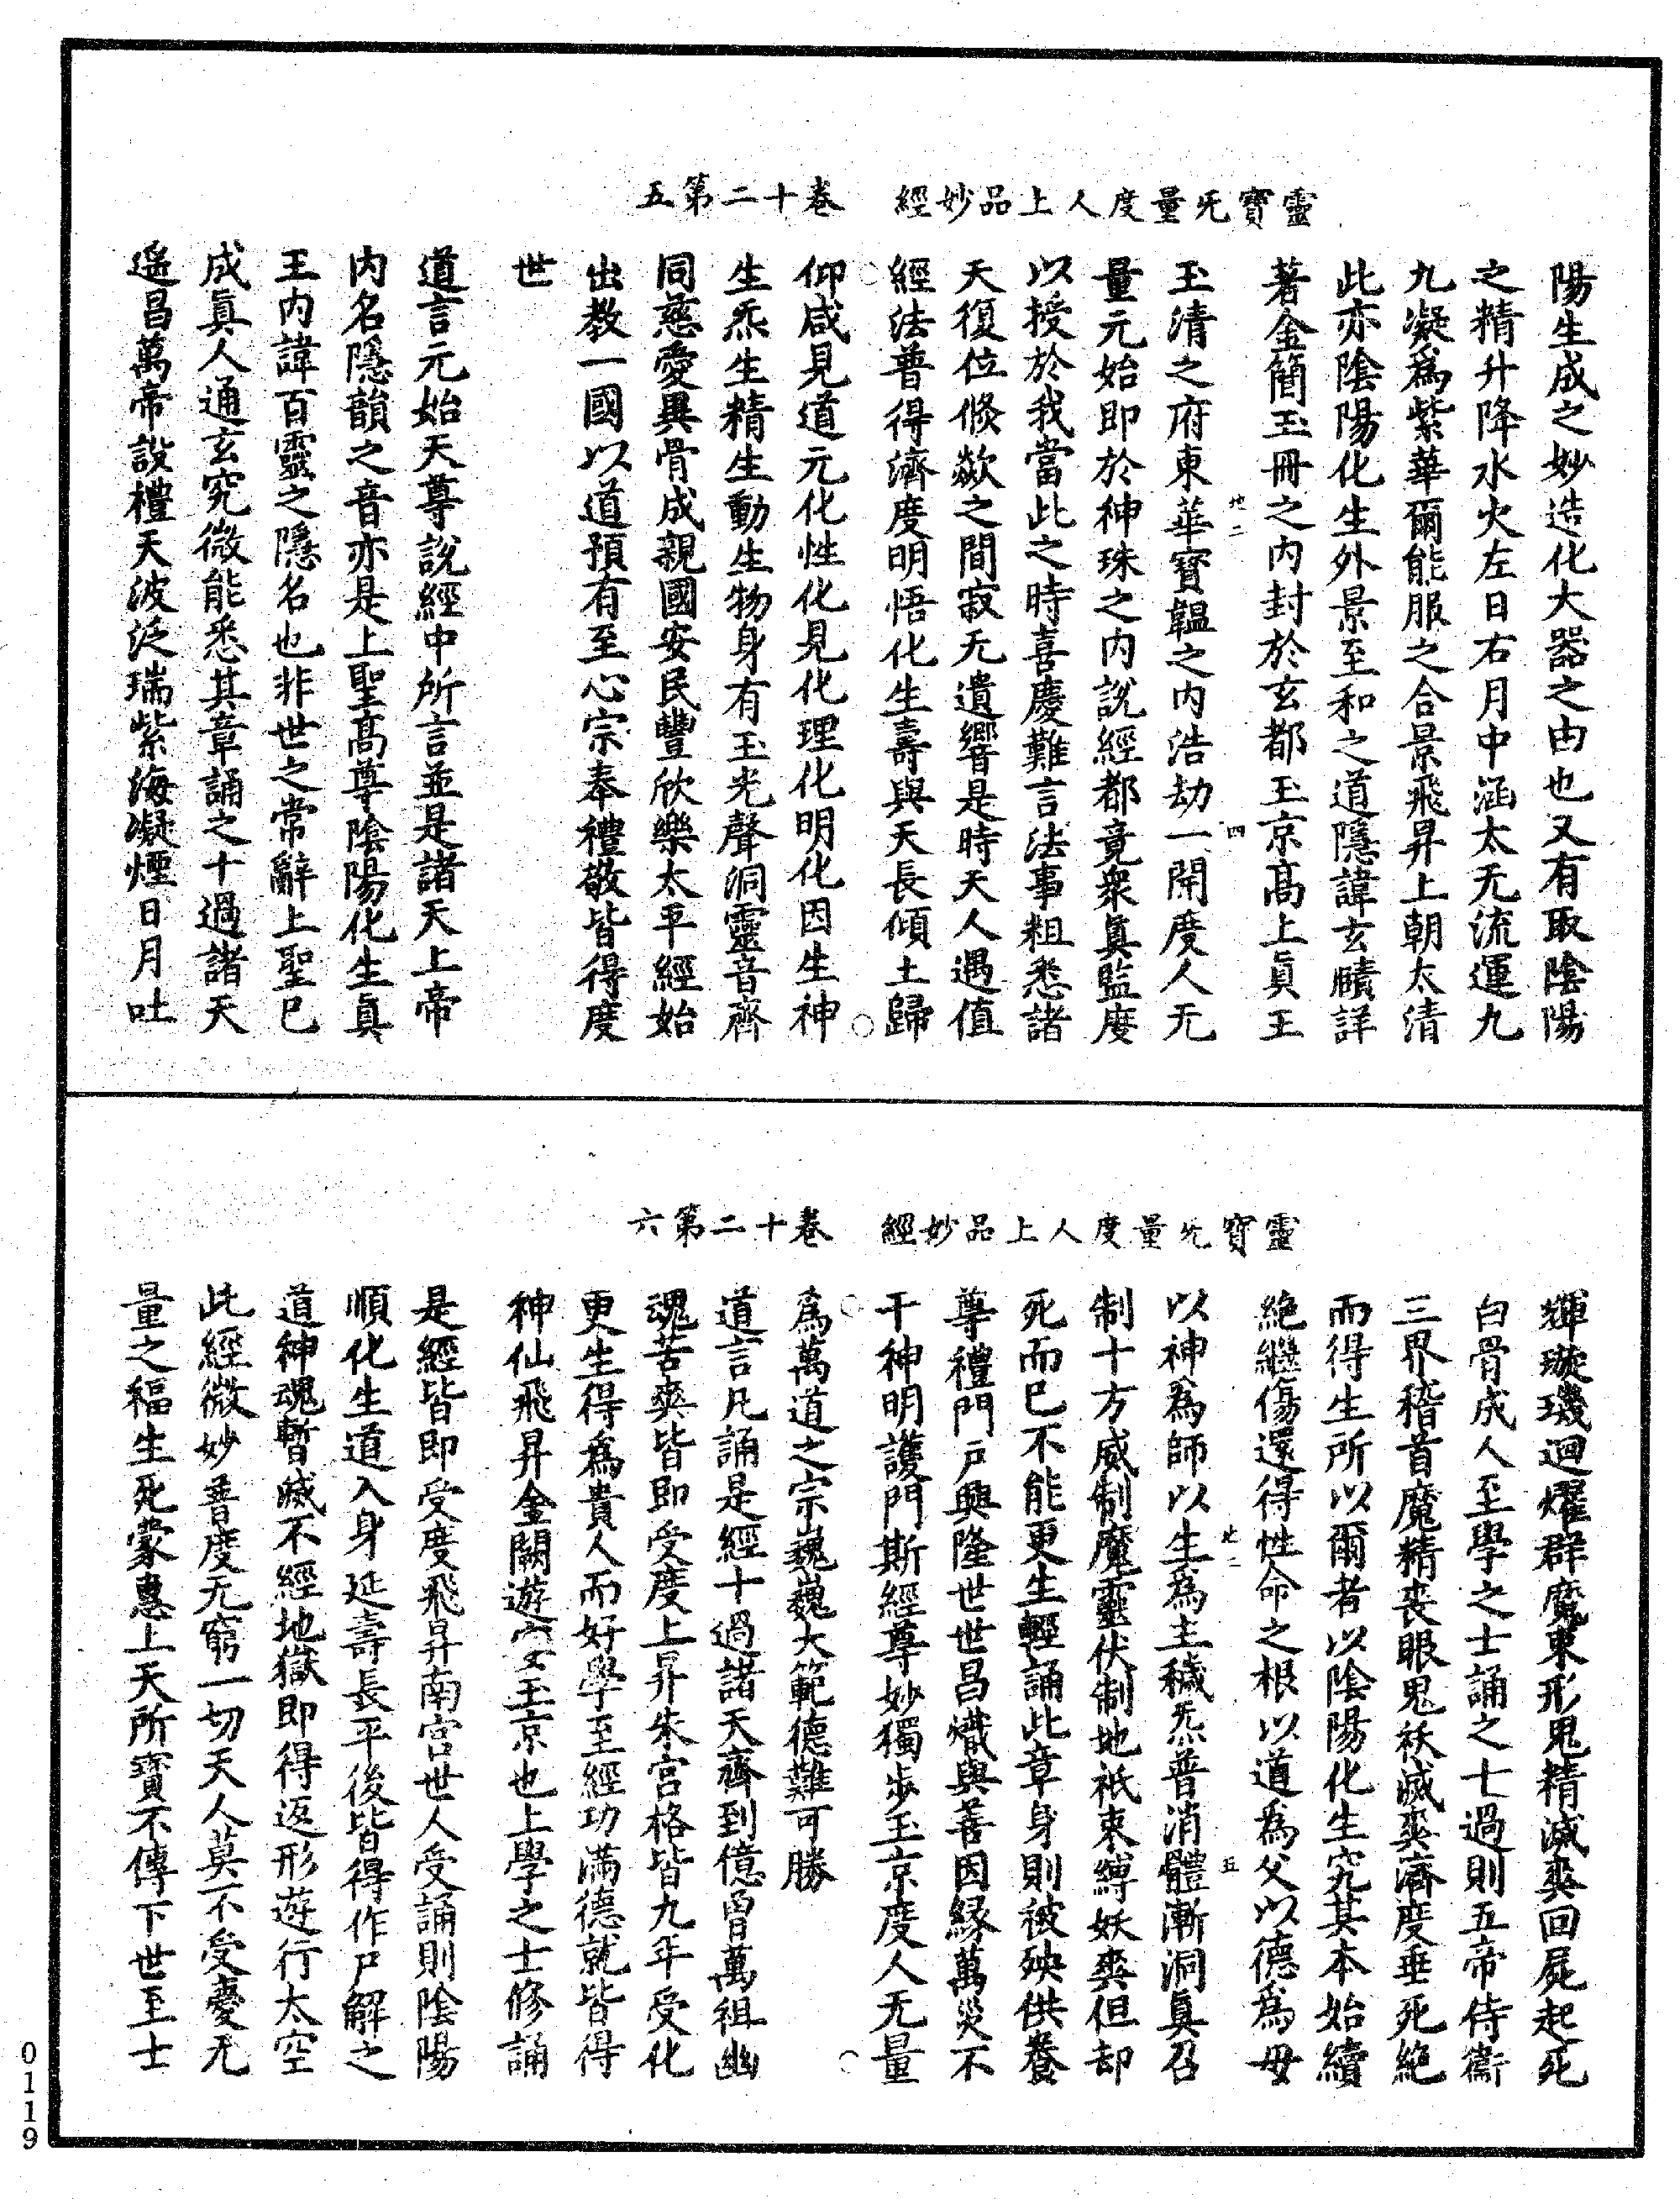 靈寶无量度人上品妙經　卷十二第五
陽生成之妙造化大器之由也又有取陰陽
之精升降水火左日右月中涵太无流運九
九凝爲紫華爾能服之合景飛昇上朝太清
此亦陰陽化生外景至和之道隱諱玄賾詳
著金簡玉冊之內封於玄都玉京高上真王
玉清之府東華寶韞之內浩劫一開度人无
量元始即於神珠之內說經都竟衆真監度
以授於我當此之時喜慶難言法事粗悉諸
天復位倏歘之間寂无遺響是時天人遇值
經法普得濟度明悟化生壽與天長傾土歸
仰咸見道元化性化見化理化明化因生神
生炁生精生動生物身有玉光聲洞靈音齊
同慈愛異骨成親國安民豐欣樂太平經始
出教一國以道預有至心宗奉禮敬皆得度
世
道言元始天尊說經中所言並是諸天上帝
內名隱韻之音亦是上聖高尊陰陽化生真
王內諱百靈之隱名也非世之常辭上聖已
成真人通玄究微能悉其章誦之十過諸天
遥昌萬帝設禮天波泛瑞紫海凝煙日月吐
靈寶无量度人上品妙經　卷十二第六
輝璇璣迴燿群魔束形鬼精滅爽回屍起死
白骨成人至學之士誦之七過則五帝侍衛
三界稽首魔精喪眼鬼祅滅爽濟度垂死絶
而得生所以爾者以陰陽化生究其本始續
絶繼傷還得性命之根以道爲父以德爲母
以神為師以生為主穢炁普消體漸洞真召
制十方威制魔靈伏制地祇束縛妖爽但却
死而已不能更生輕誦此章身則被殃供養
尊禮門戶興隆世世昌熾與善因緣萬災不
干神明護門斯經尊妙獨步玉京度人无量
爲萬道之宗巍巍大範德難可勝
道言凡誦是經十過諸天齊到億曾萬祖幽
魂苦爽皆即受度上昇朱宮格皆九年受化
更生得爲貴人而好學至經功滿德就皆得
神仙飛昇金闕遊宴玉京也上學之士修誦
是經皆即受度飛昇南宮世人受誦則陰陽
順化生道入身延壽長平後皆得作尸解之
道神魂暫滅不經地獄即得返形遊行太空
此經微妙普度无窮一切天人莫不受慶无
量之福生死蒙惠上天所寶不傳下世至士
0119